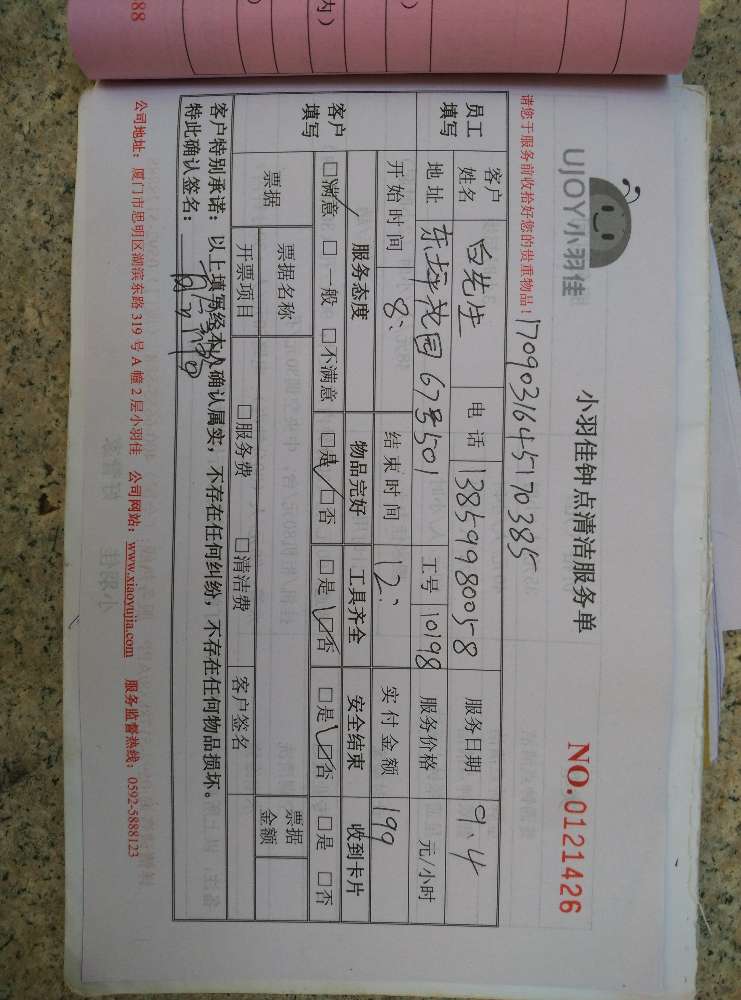 UJOY小羽佳
小羽佳钟点清洁服务单
NO.0121426
请您于服务前收拾好您的贵重物品！
1709031645170385
员工填写
客户姓名 白先生 电话 13859980058 服务日期 9.4
地址 东坪花园67号501 工号 10198 服务价格 元/小时
开始时间 8: 结束时间 12: 实付金额 199
客户填写
服务态度 物品完好 工具齐全 安全结束 收到卡片
□满意 □一般 □不满意 □是 □否 □是 □否 □是 □否 □是 □否
票据 票据名称 票据金额
开票项目 □服务费 □清洁费 客户签名
客户特别承诺：以上填写经本人确认属实，不存在任何纠纷，不存在任何物品损坏。
特此确认签名：
公司地址：厦门市思明区湖滨东路319号A幢2层小羽佳 公司网站：www.xiaoyujia.com 服务监督热线：0592-5888123